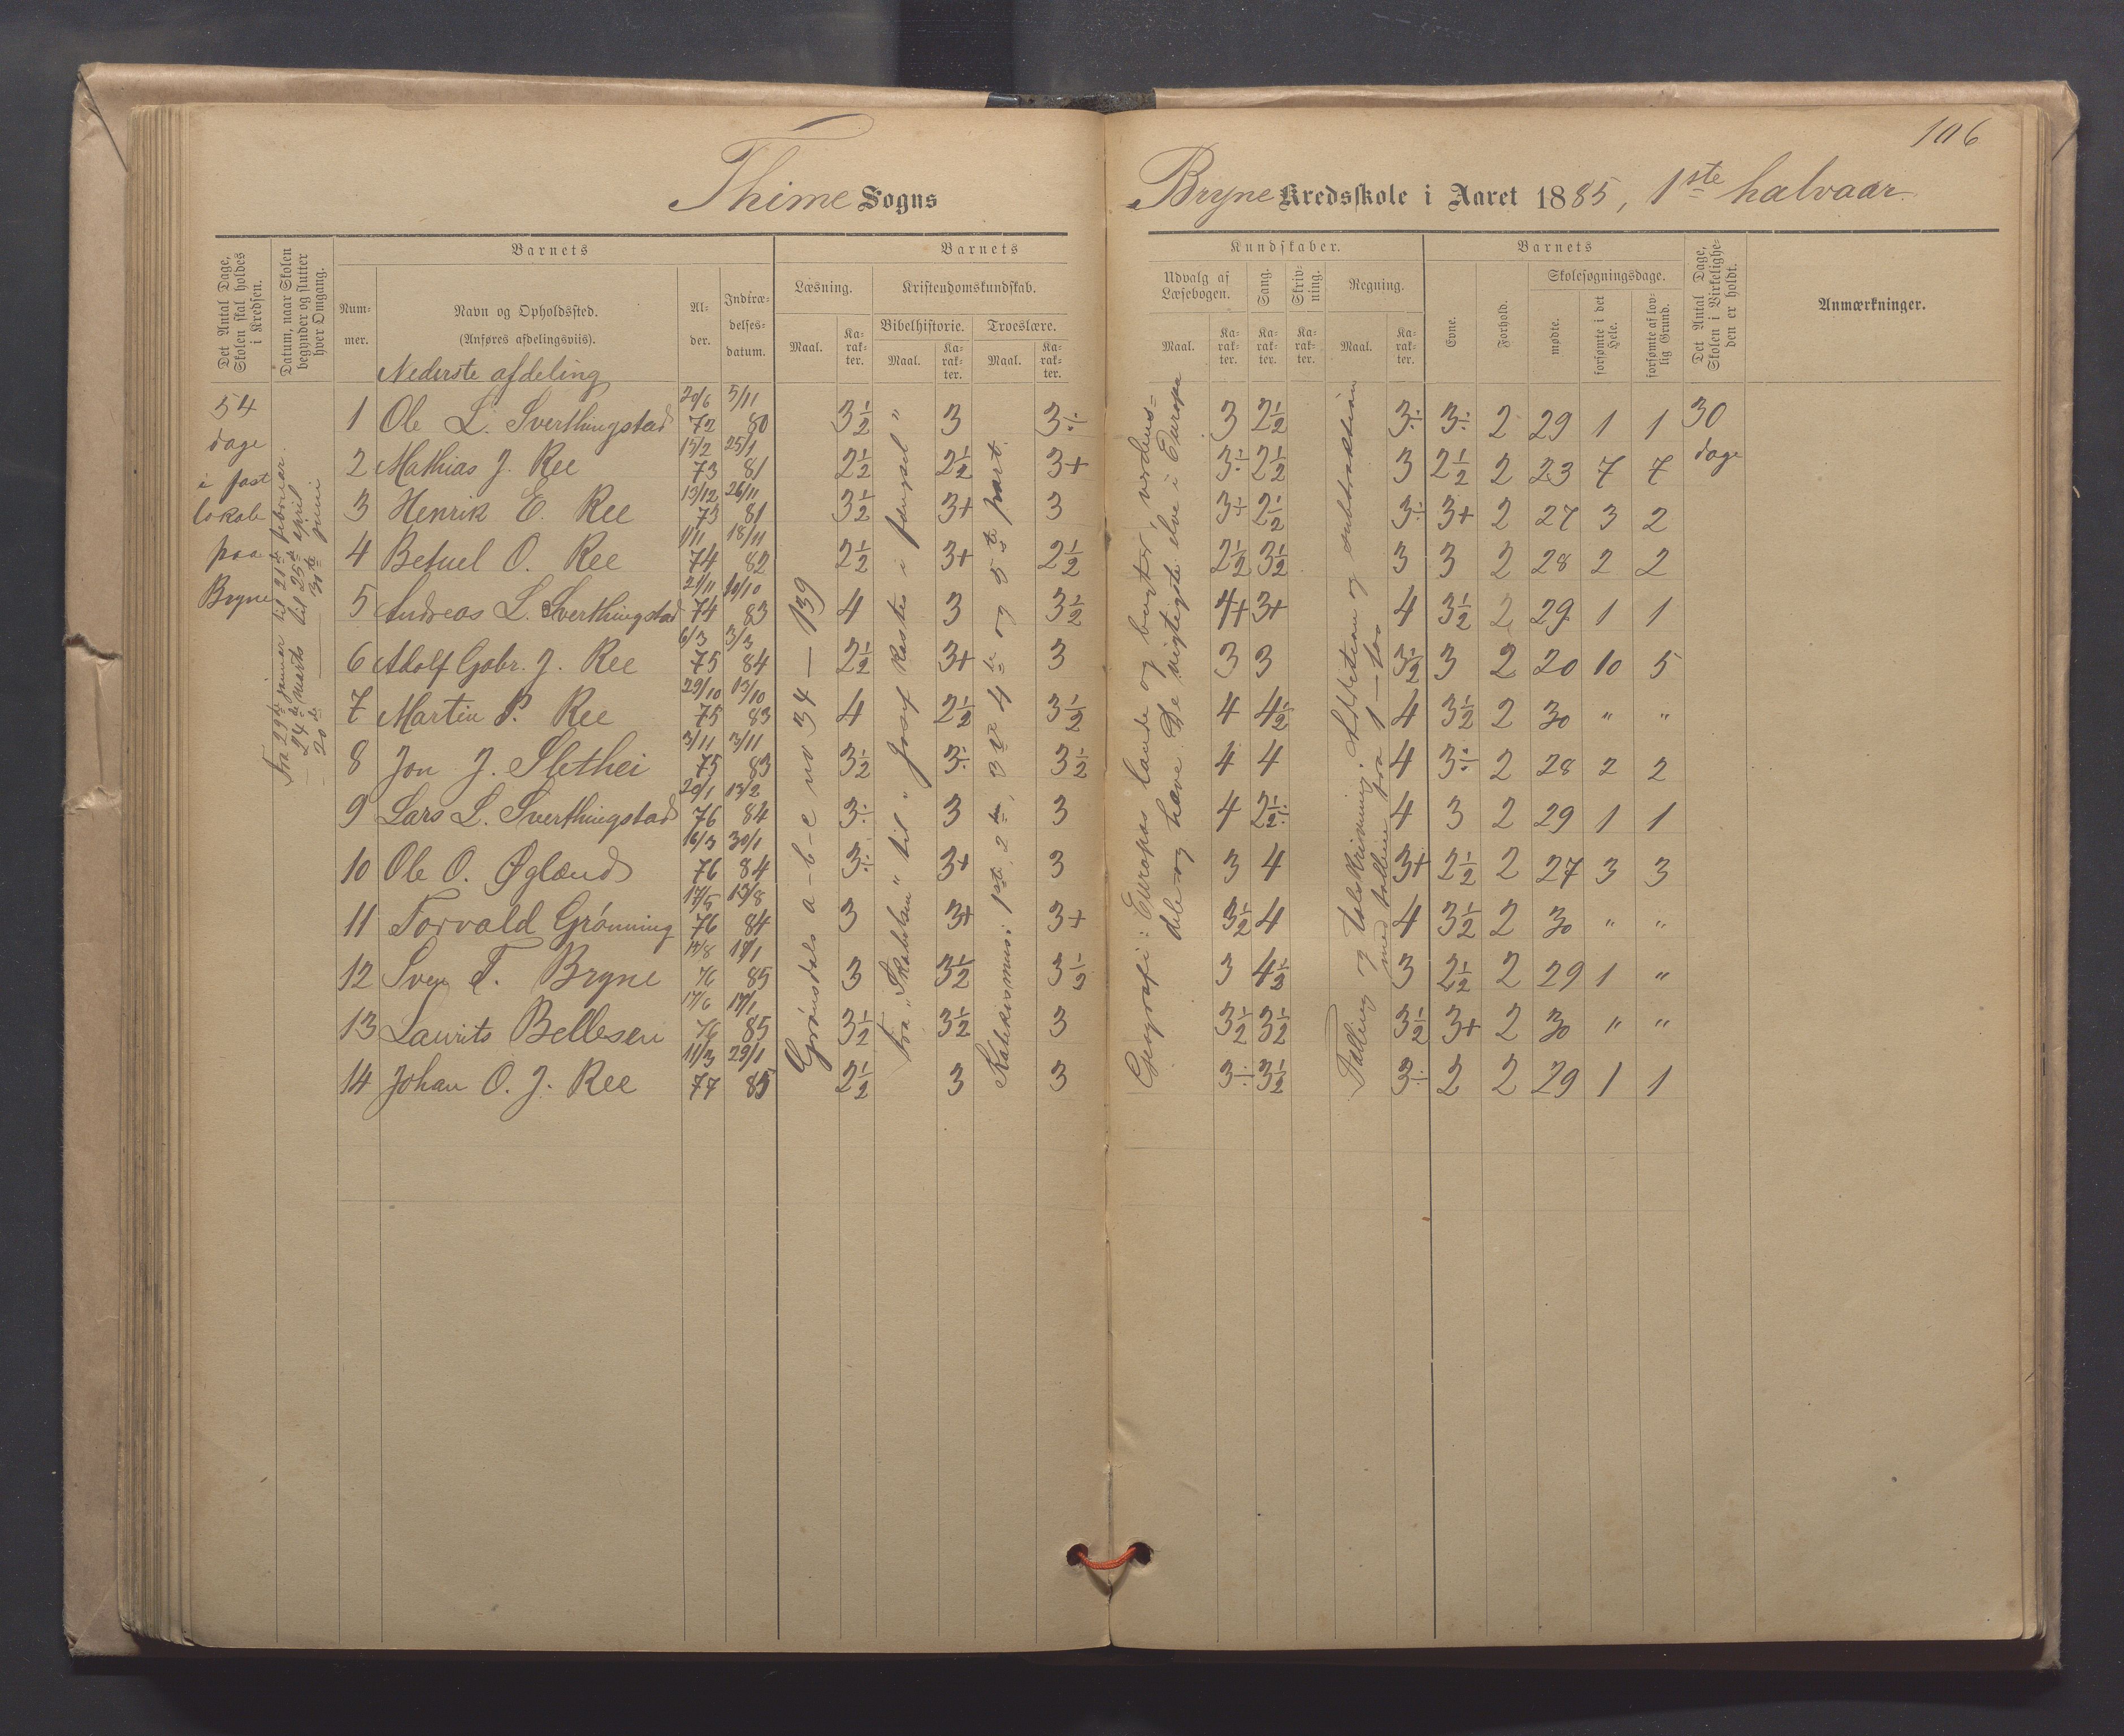 106
Thime Sogns
Bryne Kredsskole i Aaret 1885, 1ste halvaar.
Det Antal Dage, Skolen skal holdes i Kredsen.
Datum, naar Skolen begynder og slutter hver Omgang.
Barnets
Nummer.
Navn og Opholdssted.
(Anføres afdelingsviis).
Alder.
Indtrædelsesdatum.
Barnets
Læsning.
Maal.
Karakter.
Kristendomskundskab.
Bibelhistorie.
Maal.
Karakter.
Troeslære.
Maal.
Karakter.
Kundskaber.
Udvalg af Læsebogen.
Maal.
Karakter.
Sang.
Karakter.
Skrivning.
Karakter.
Regning.
Maal.
Karakter.
Barnets
Evne.
Forhold.
Skolesøgningsdage.
mødte.
forsømte i det Hele.
forsømte af lovlig Grund.
Det Antal Dage, Skolen i Virkeligheden er holdt.
Anmærkninger.
Nederste afdeling
54 dage i fast lokale paa Bryne
Fra 29de januar til 21de februar.
— 24de marts til 25de april
— 20de — — 30te juni
Grønsdals a-b-c no 34 — 139
Fra „Skabelsen" til „Josef kastes i fængsel"
Katekismus: 1ste, 2den, 3die 4de og 5te part.
Geografi: Europas lande og bugter, verdens-
dele og have. De vigtigste elve i Europa
Tælling og talskrivning. Addition og subtraktion
med tallene fra 1 — 100
1 Ole L. Sverthingstad 20/6 72 5/11 80 3½ 3 3÷ 3 2½ 3÷ 3÷ 2 29 1 1 30 dage
2 Mathias J. Ree 15/2 73 25/1 81 2½ 2½ 3+ 3÷ 2½ 3 2½ 2 23 7 7
3 Henrik E. Ree 13/12 73 26/11 81 3½ 3+ 3 3÷ 2½ 3÷ 3+ 2 27 3 2
4 Betuel O. Ree 1/11 74 18/11 82 2½ 3+ 2½ 2½ 3½ 3 3 2 28 2 2
5 Andreas L. Sverthingstad 21/11 74 10/10 83 4 3 3½ 4+ 3+ 4 3½ 2 29 1 1
6 Adolf Gabr. J. Ree 6/3 75 3/3 84 2½ 3+ 3 3 3 3½ 3 2 20 10 5
7 Martin P. Ree 29/10 75 13/10 83 4 2½ 3½ 4 4½ 4 3½ 2 30 " "
8 Jon J. Slethei 3/11 75 3/11 83 3½ 3÷ 3½ 4 4 4 3÷ 2 28 2 2
9 Lars L. Sverthingstad 20/1 76 13/2 84 3÷ 3 3 4 2½÷ 4 3 2 29 1 1
10 Ole O. Øglænd 16/3 76 30/1 84 3÷ 3+ 3 3 4 3+ 2½ 2 27 3 3
11 Torvald Grønning 17/5 76 13/8 84 3 3+ 3+ 3½ 4 4 3½ 2 30 " "
12 Sven T. Bryne 14/8 76 17/1 85 3 3½ 3½ 3 4½ 3 2½ 2 29 1 "
13 Laurits Bellesen 17/6 76 17/1 85 3½ 3½ 3 3½ 3½ 3½ 3+ 2 30 " "
14 Johan O. J. Ree 11/3 77 29/1 85 2½ 3 3 3÷ 3½ 3÷ 2 2 29 1 1